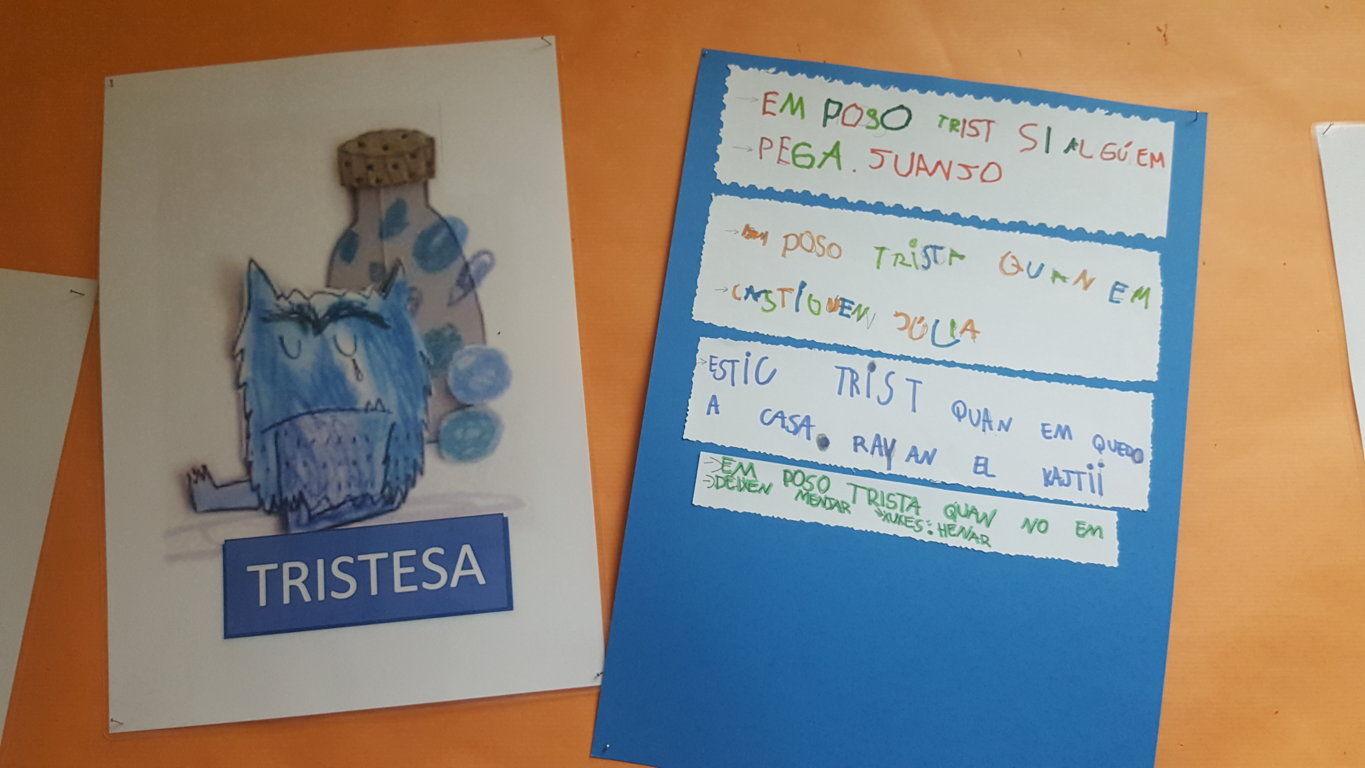 TRISTESA
→ EM POSO TRIST SI ALGÚ EM
→ PEGA. JUANJO
→ EM POSO TRISTA QUAN EM
→ CASTIGUEN JÚLIA
→ ESTIC TRIST QUAN EM QUEDO
A CASA. RAYAN EL
→ EM POSO TRISTA QUAN NO EM
→ DEIXEN MENJAR XUXES: HENAR